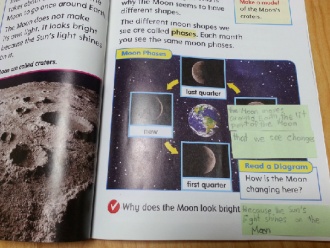 Moon to go around Earth.
Moon does not make
own light. It looks bright
because the Sun's light shines
on it.
are called craters.
why the Moon seems to have
different shapes.
The different moon shapes we
see are called phases. Each month
you see the same moon phases.
Make a model
of the Moon's
craters.
Moon Phases
last quarter
new
first quarter
The Moon
that we see changes
Read a Diagram
How is the Moon
changing here?
Why does the Moon look bright
Because the Sun's
light shines on the
Moon